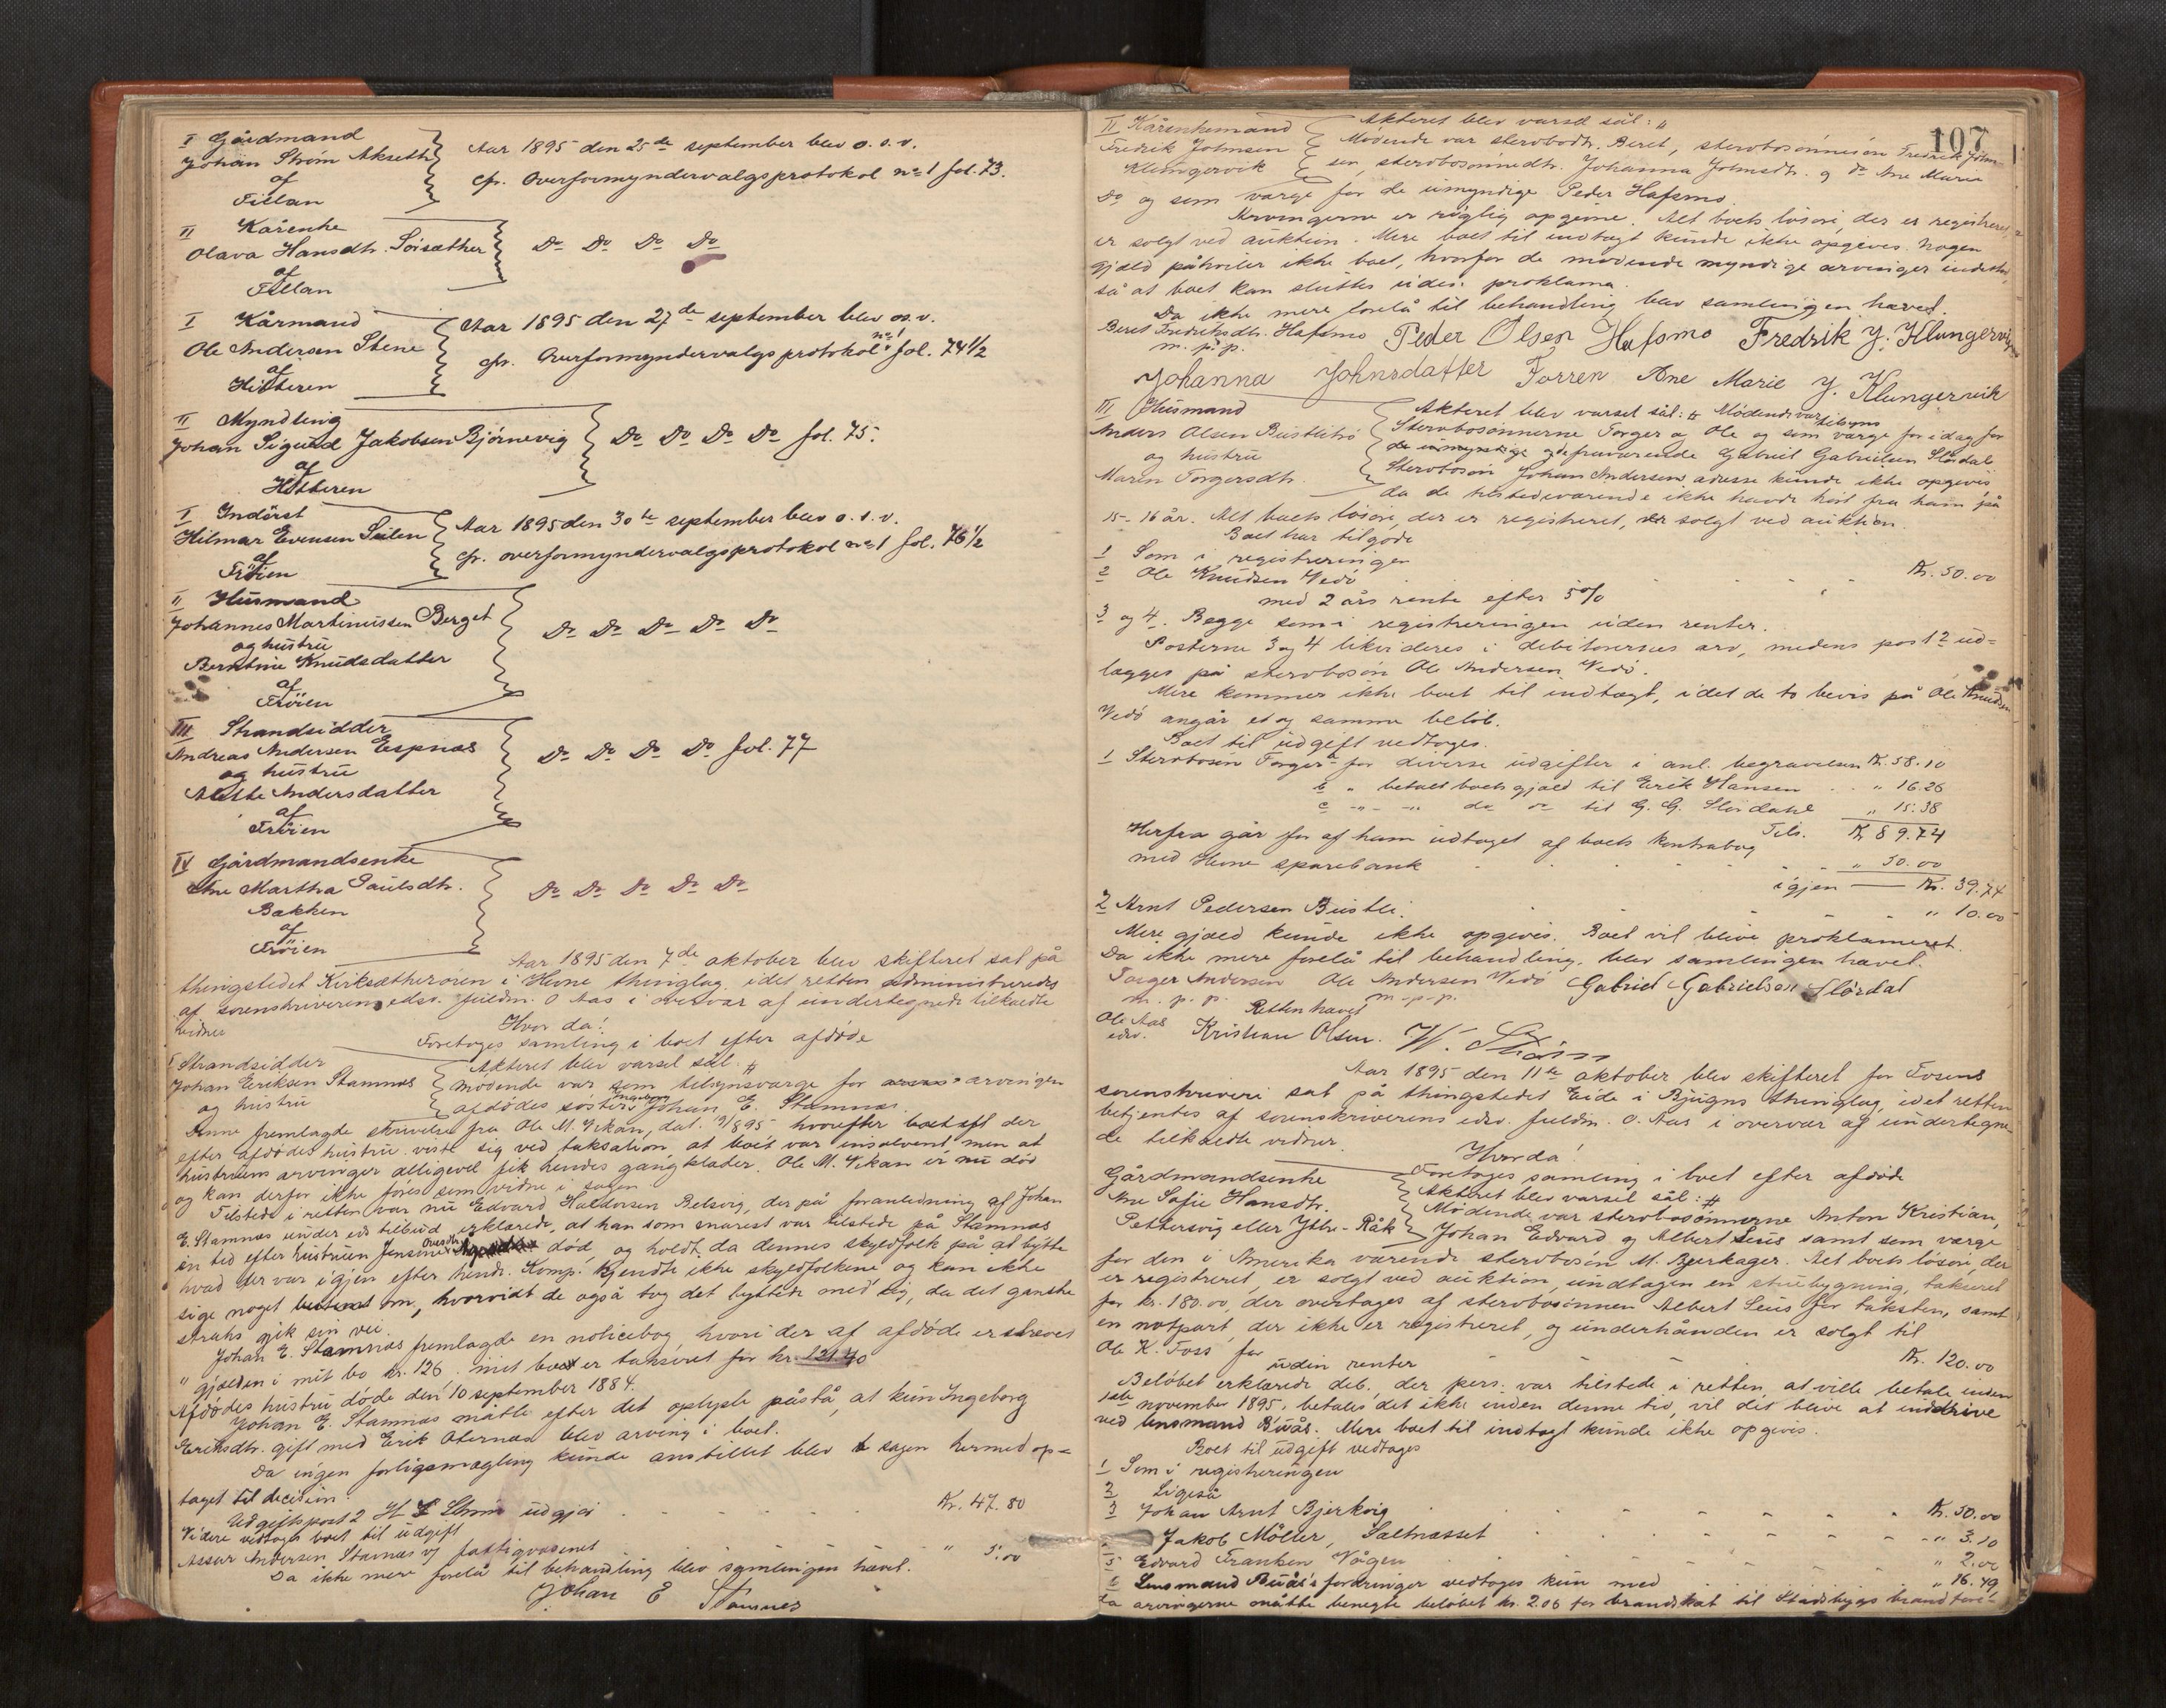 I Gårdmand
Johan Strøm Akseth
af
Fillan
Aar 1895 den 25de september blev o. s. v.
cfr. Overformyndervalgsprotokol no 1 fol. 73.
II Kårenke
Olava Hansdtr. Söisæther
af
Fillan
Do Do Do Do
I Kårmand
Ole Andersen Stene
af
Hitteren
Aar 1895 den 27de september blev os.v.
cfr. Overformyndervalgsprotokol no 1 fol. 74 1/2
II Myndling
Johan Sigurd Jakobsen Björnevig
af
Hitteren
Do Do Do Do fol. 75.
I Inderst
Hilmar Evensen
af
Fröien
Aar 1895 den 30te september blev o. s. v.
cfr. overformyndervalgsprotokol no 1 fol. 76 1/2
II Husmand
Johannes Martinussen Berget
og hustru
Berntine Knudsdatter
af
Fröien
Do Do Do Do Do
III Strandsidder
Andreas Andersen Espnæs
og hustru
Andersdatter
af
Fröien
Do Do Do Do fol. 77
IV Gårdmandsenke
Ane Martha Paulsdtr.
Bakken
af
Fröien
Do Do Do Do Do
Aar 1895 den 7de oktober blev skifteret sat på
thingstedet Kirksætherören i Hevne thinglag, idet retten administreredes
af sorenskriverens edsv. fuldm. O Aas i overvær af undertegnede tilkaldte
vidner
Hvor da!
Foretoges samling i boet efter afdöde
I Strandsidder
Johan Eriksen Stamnæs
og hustru
Akteret blev varsel sål.
Mödende var som tilsynsværge for arvingen
afdödes söster Ingeborg Johan E. Stamnæs.
Denne fremlagde skrivelse fra Ole M. Vikan, dat. hvorefter boet eft der
efter afdödes hustru viste sig ved taksation, at boet var insolvent men at
hustruens arvinger alligevel fik hendes gangklæder. Ole M. Vikan er nu död
og kan derfor ikke föres som vidne i sagen.
Tilstede i retten var nu Edvard Haldorsen Belsvig, der på foranledning af Johan
E. Stamnæs under eds tilbud erklærede, at han som snarest var tilstede på Stamnæs
en tid efter hustruen Jensine Ovesdtr död, og holdt da dennes skyldfolk på at bytte
hvad der var igjen efter hende. Komp. kjendte ikke skyldfolkene og kan ikke
sige noget bestemt om, hvorvidt de også tog det byttede med sig, da det ganske
straks gik sin vei.
Johan E. Stamnæs fremlagde en noticebog hvori der af afdöde er skrevet
" gjælden i mit bo kr. 126. mit boet er takseret for kr. 121.40
Afdödes hustru döde den 10 september 1884.
Johan E. Stamnæs måtte efter det oplyste påstå, at kun Ingeborg
Eriksdtr. gift med Erik Oternæs blev arving i boet.
Da ingen forligsmægling kunde anstilles blev sagen hermed op=
taget til decision.
Udgiftspost 2 H Ström udgjör . . . . Kr. 47.80
Videre vedtoges boet til udgift
Assur Andersen Stamnæs v/ fattigvæsenet " 5.00
Da ikke mere forelå til behandling blev samlingen hævet.
Johan E Stamnes
107
II Kårenkemand
Fredrik Johnsen
Klungervik
Akteret blev varsel sål: "
Mödende var sterbodtr. Beret, sterbosönnesön Fredrik John
sen, sterbosönnedtr. Johanna Johnsdtr. og do Ane Marie
Do og som værge for de umyndige Peder Hafsmo.
Arvingerne er rigtig opgivne. Alt boets lösöre, der er registreret,
er solgt ved auktion. Mere boet til indtægt kunde ikke opgives. Nogen
gjæld påhviler ikke boet, hvorfor de mödende myndige arvinger indestår,
så at boet kan sluttes uden proklama.
Da ikke mere forelå til behandling blev samlingen hævet.
Beret Fredriksdtr. Hafsmo Peder Olsen Hafsmo Fredrik J. Klungervig
m. p. p.
Johanna Johnsdatter Forren Ane Marie J. Klungervik
III Husmand
Anders Olsen Bustlitrö
og hustru
Maren Torgersdtr.
Akteret blev varsel sål: Mödende var
Sterbosönnerne Torger og Ole og som tilsyns værge for idag for
de fraværende Gabriel Gabrielsen Slördal
Sterbosön Johan Andersens adresse kunde ikke opgives
da de tilstedeværende ikke havde hört fra ham på
15-16 år. Alt boets lösöre, der er registreret, er solgt ved auktion.
Boet har tilgode
1 Som i registreringen
2 Ole Knudsen Vedö . . . . Kr. 50.00
med 2 års rente efter 5%
3 og 4. Begge som i registreringen uden renter.
Posterne 3 og 4 likvideres i debitorernes arv, medens post 2 ud=
lægges på sterbosön Ole Andersen Vedö.
Mere kommer ikke boet til indtægt, idet de to bevis på Ole Knudsen
Vedö angår et og samme belöb.
Boet til udgift vedtoges.
1 Sterbosön Torger a for diverse udgifter i anl. begravelsen Kr. 58.10
b " betalt boets gjæld til Erik Hansen . . " 16.26
c -"- -"- do do til G. G. Slördahl " 15.38
Tils. Kr. 89.74
Herfra går for af ham udtaget af boets kontrabog
med Hevne sparebank . . . . " 50.00
igjen — Kr. 39.74
2 Arnt Pedersen Bustli. . . . " 10.00
Mere gjæld kunde ikke opgives. Boet vil blive proklameret.
Da ikke mere forelå til behandling, blev samlingen hævet.
Torger Andersen Ole Andersen Vedö Gabriel Gabrielsen Slördal
m. p. p. m. p. p.
Retten hævet
Ole Aas Kristian Olsen. W. Ström
edsv.
Aar 1895 den 11te oktober blev skifteret for Fosens
sorenskriveri sat på thingstedet Eide i Bjugns thinglag, idet retten
betjentes af sorenskriverens edsv. fuldm. O. Aas i overvær af undertegne
de tilkaldte vidner.
Hvor da!
Foretoges samling i boet efter afdöde
Gårdmandsenke
Ane Sofie Hansdtr.
Pettersvig eller Ytre-Råk
Akteret blev varsel sål:
Mödende var sterbosönnerne Anton Kristian,
Johan Edvard og Albert Leus samt som værge
for den i Amerika værende sterbosön M. Bjerkager. Alt boets lösöre, der
er registreret, er solgt ved auktion, undtagen en stuebygning, takseret
for kr. 180.00, der overtages af sterbosönnen Albert Leus for taksten, samt
en notpart, der ikke er registreret, og underhånden er solgt til
Ole K. Foss for . . . . Kr. 120.00
uden renter
Belöbet erklærede deb., der pers. var tilstede i retten, at ville betale inden
1ste november 1895, betales det ikke inden denne tid, vil det blive at inddrive
ved lensmand Buås. Mere boet til indtægt kunde ikke opgives.
Boet til udgift vedtoges
1 Som i registreringen
2 Ligeså
3 Johan Arnt Bjerkvig . . . . Kr. 50.00
Jakob Möller, Saltnæsset . . . . " 3.10
5 Edvard Franken Vågen . . . . " 2.00
6 Lensmand Buås's fordringer vedtoges kun med " 16.49,
da arvingerne måtte benegte belöbet kr. 2.06 for brandskat til Stadsbygs brandfore-